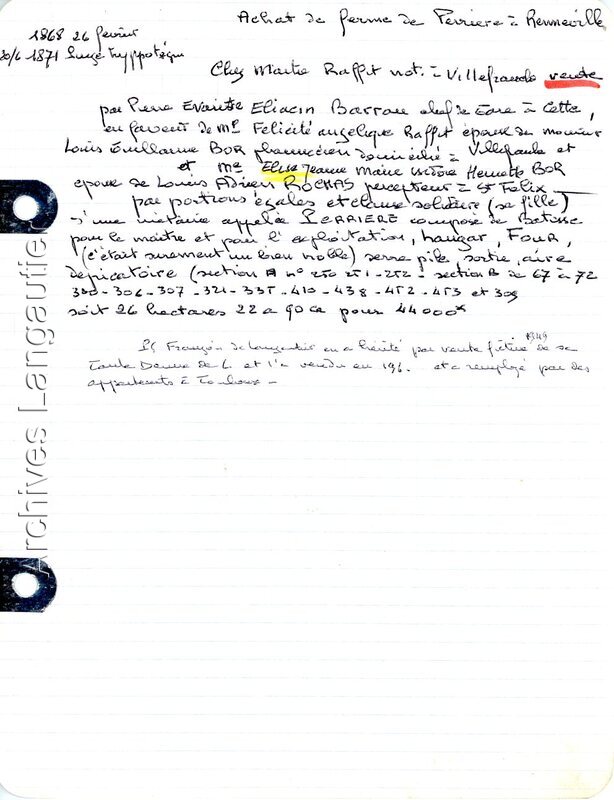 Achat de ferme de Perriere à Renneville
1868 26 fevrier
20/6 1871 hyppotèque
Chez Maitre Raffit not. à Villefranche vente
par Pierre Evariste Eliacin Barrau chef de gare à Cette,
en faveur de Me Felicité Angelique Raffit épouse de monsieur
Louis Guillaume BOR pharmacien domicilié à Villefranche et
et Me Elisa Jeanne Marie Victoire Henriette BOR
epouse de Louis Adrien ROCHAS percepteur à St Felix
par portions égales et clause solidaire (sa fille)
d'une metairie appelée PERRIERE composé de Batisse
pour le maitre et pour l'exploitation, hangar, FOUR,
(c'était surement un bien noble) serre pile, sortie, aire
depicatoire (section A n° 250 251-252 - section B de 67 à 72
300-306-307-321-335-410-438-452-453 et 309
soit 26 hectares 22 a 90 ca pour 44000
1949
François de Langautier en a hérité par vente fictive de sa
Tante Denise de L. et l'a vendu en 196. et a remployé par des
appartements à Toulouse -
Archives Langautier